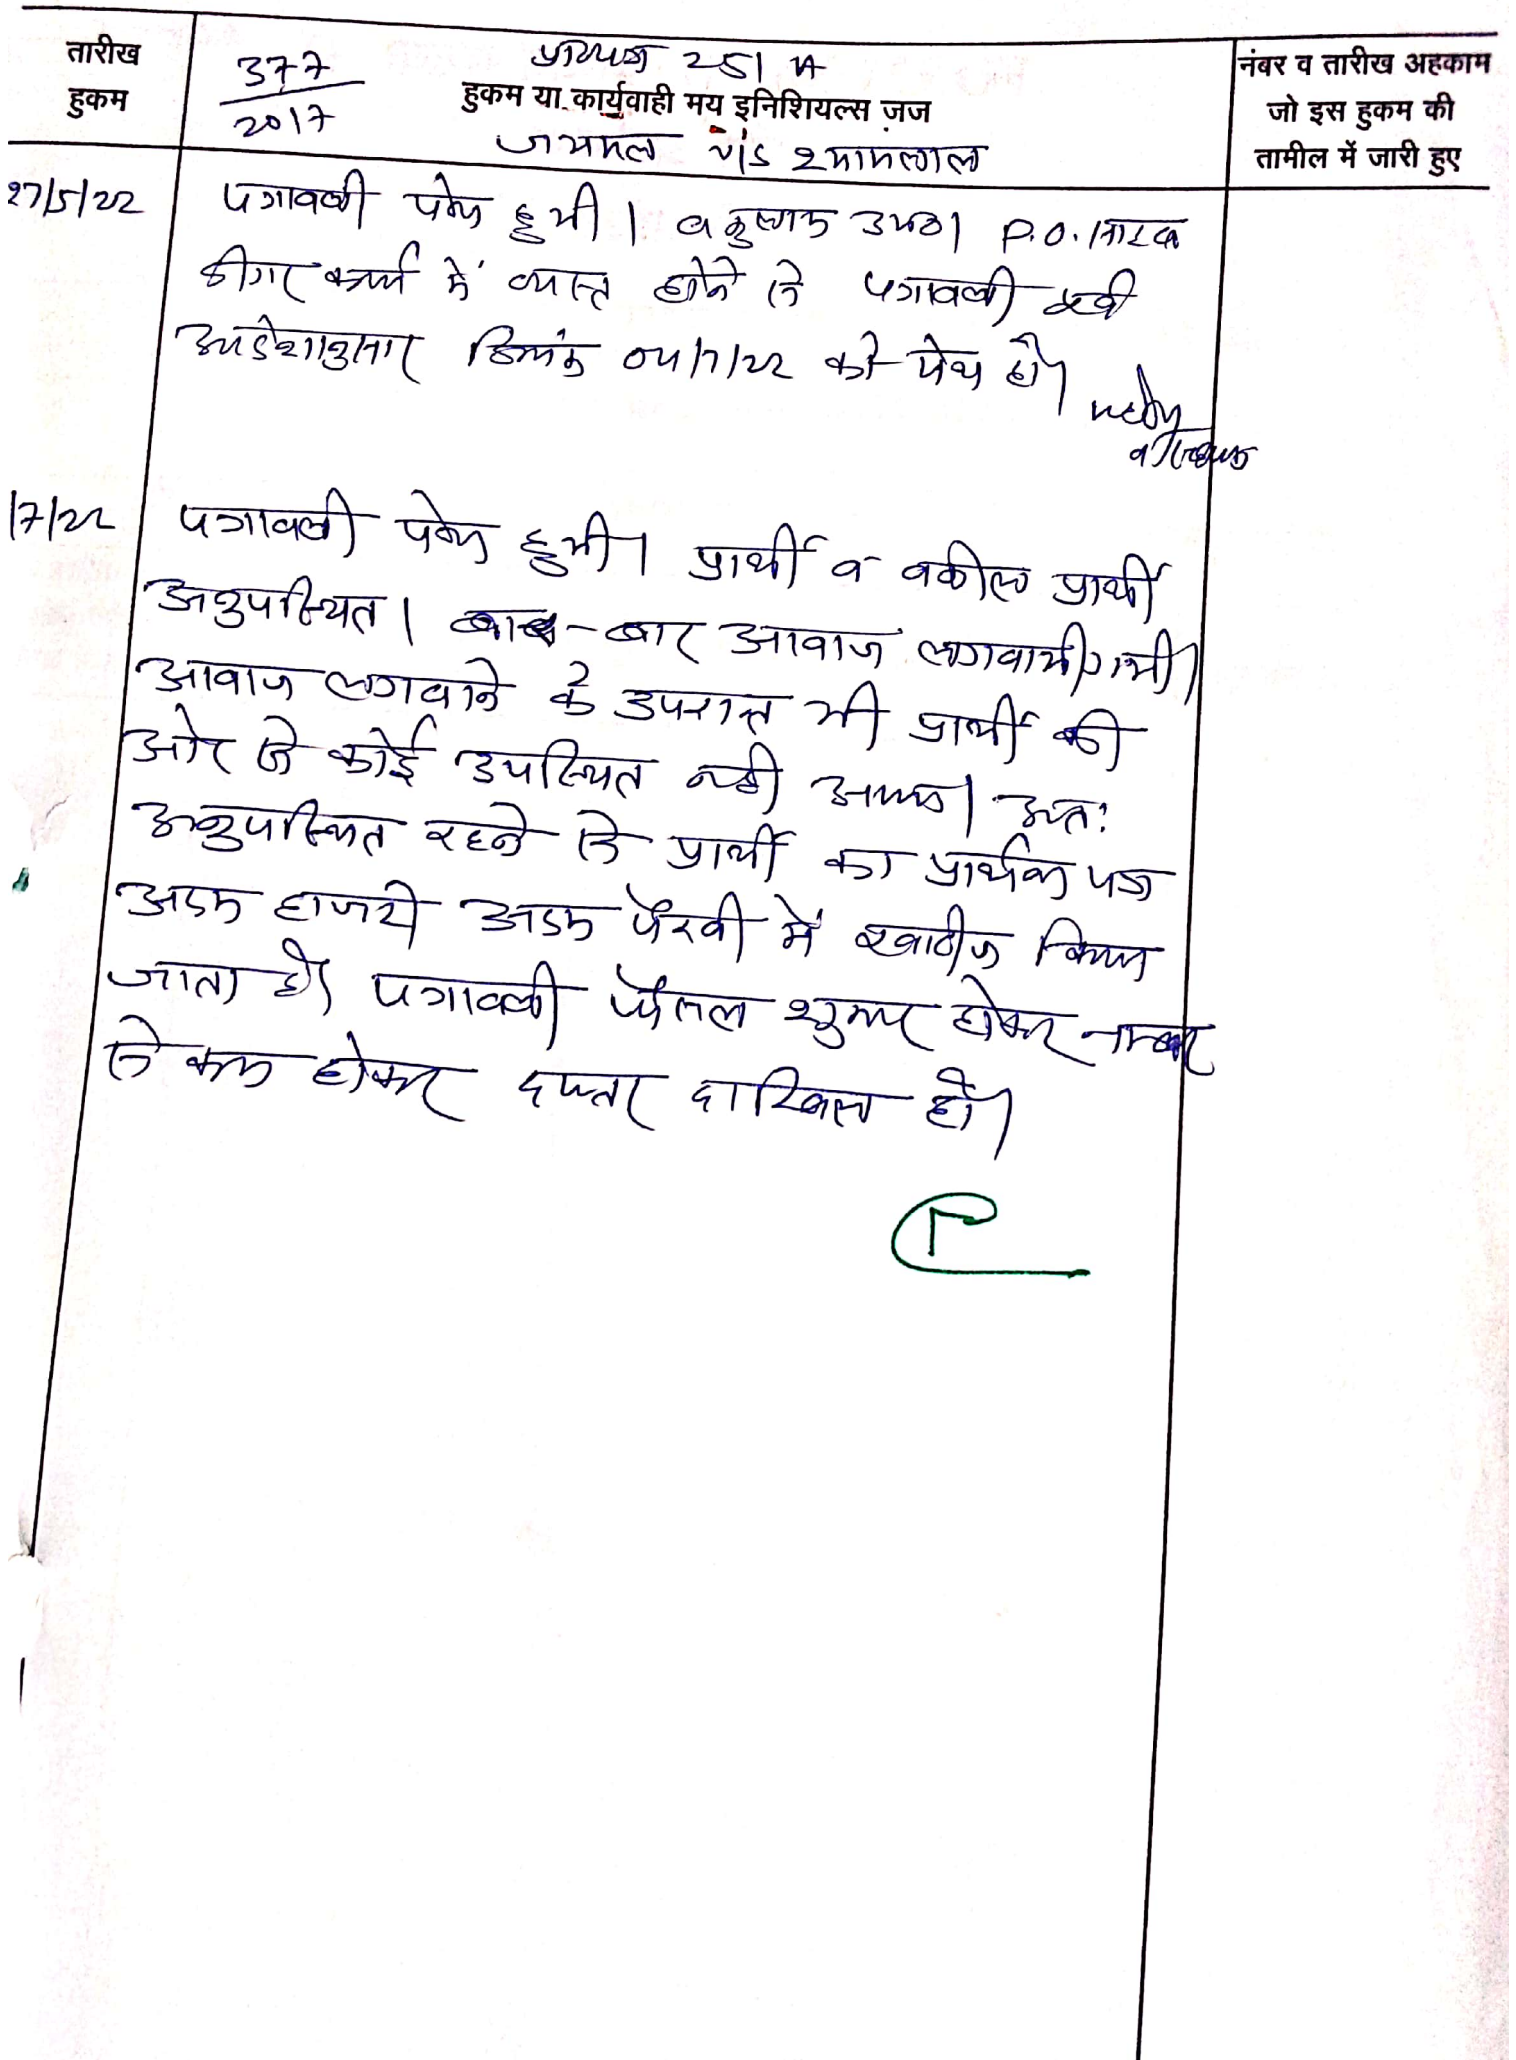 तारीख हुकम
377/2017
प्रा०पत्र 251 A
हुकम या कार्यवाही मय इनिशियल्स जज
जयमल v/s श्यामलाल
नंबर व तारीख अहकाम
जो इस हुकम की
तामील में जारी हुए
27/5/22 पत्रावली पेश हुयी। व कुलाय उभय। P.O.
दीगर कार्य में व्यस्त होने से पत्रावली
आदेशानुसार दिनांक 04/7/22 को पेश हो।
/7/22 पत्रावली पेश हुयी। प्रार्थी व वकील प्रार्थी
अनुपस्थित। बार-बार आवाज लगवायी गयी।
आवाज लगवाने के उपरान्त भी प्रार्थी की
ओर से कोई उपस्थित नही आया। अतः
अनुपस्थित रहने से प्रार्थी का प्रार्थना पत्र
अदम हाजरी अदम पैरवी में खारीज किया
जाता है। पत्रावली फैसल शुमार होकर नम्बर
से कम होकर दफ्तर दाखिल हो।